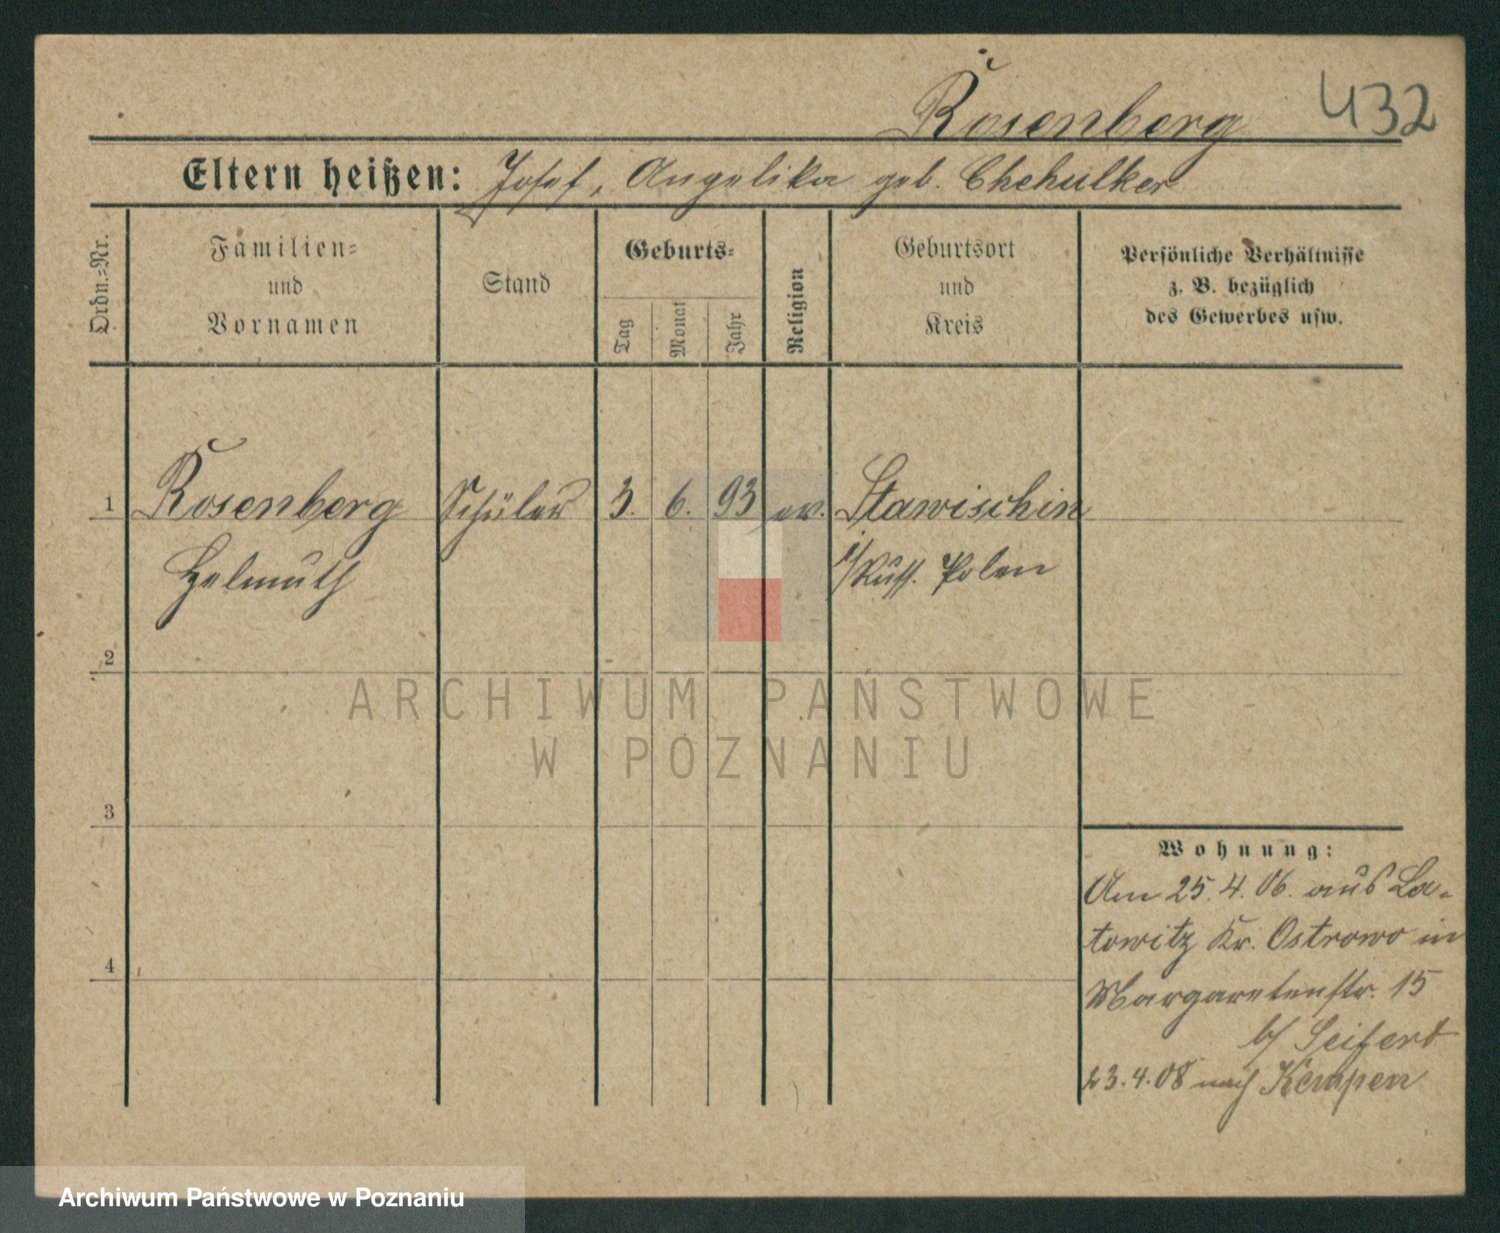 Rosenberg 432
Eltern heißen: Josef, Angelika geb. Chehulker
Ordn.-Nr.
Familien-
und
Vornamen
Stand
Geburts-
Tag
Monat
Jahr
Religion
Geburtsort
und
Kreis
Persönliche Verhältnisse
z. B. bezüglich
des Gewerbes usw.
1 Rosenberg Schüler 3. 6. 93 ev. Stawischin
Helmuth i/Russ. Polen
2
ARCHIWUM PAŃSTWOWE
W POZNANIU
3
Wohnung:
Am 25.4.06. aus La-
towitz Kr. Ostrowo in
4
Margaretenstr. 15
b/ Seifert
23.4.08 nach Kempen
Archiwum Państwowe w Poznaniu